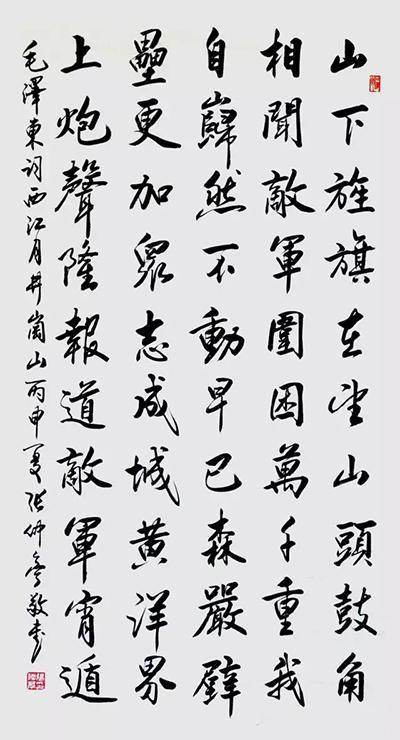 山下旌旗在望山頭鼓角
相聞敵軍圍困萬千重我
自巋然不動早已森嚴壁
壘更加眾志成城黃洋界
上炮聲隆報道敵軍宵遁
毛澤東词西江月井崗山丙申夏张仲亭敬书